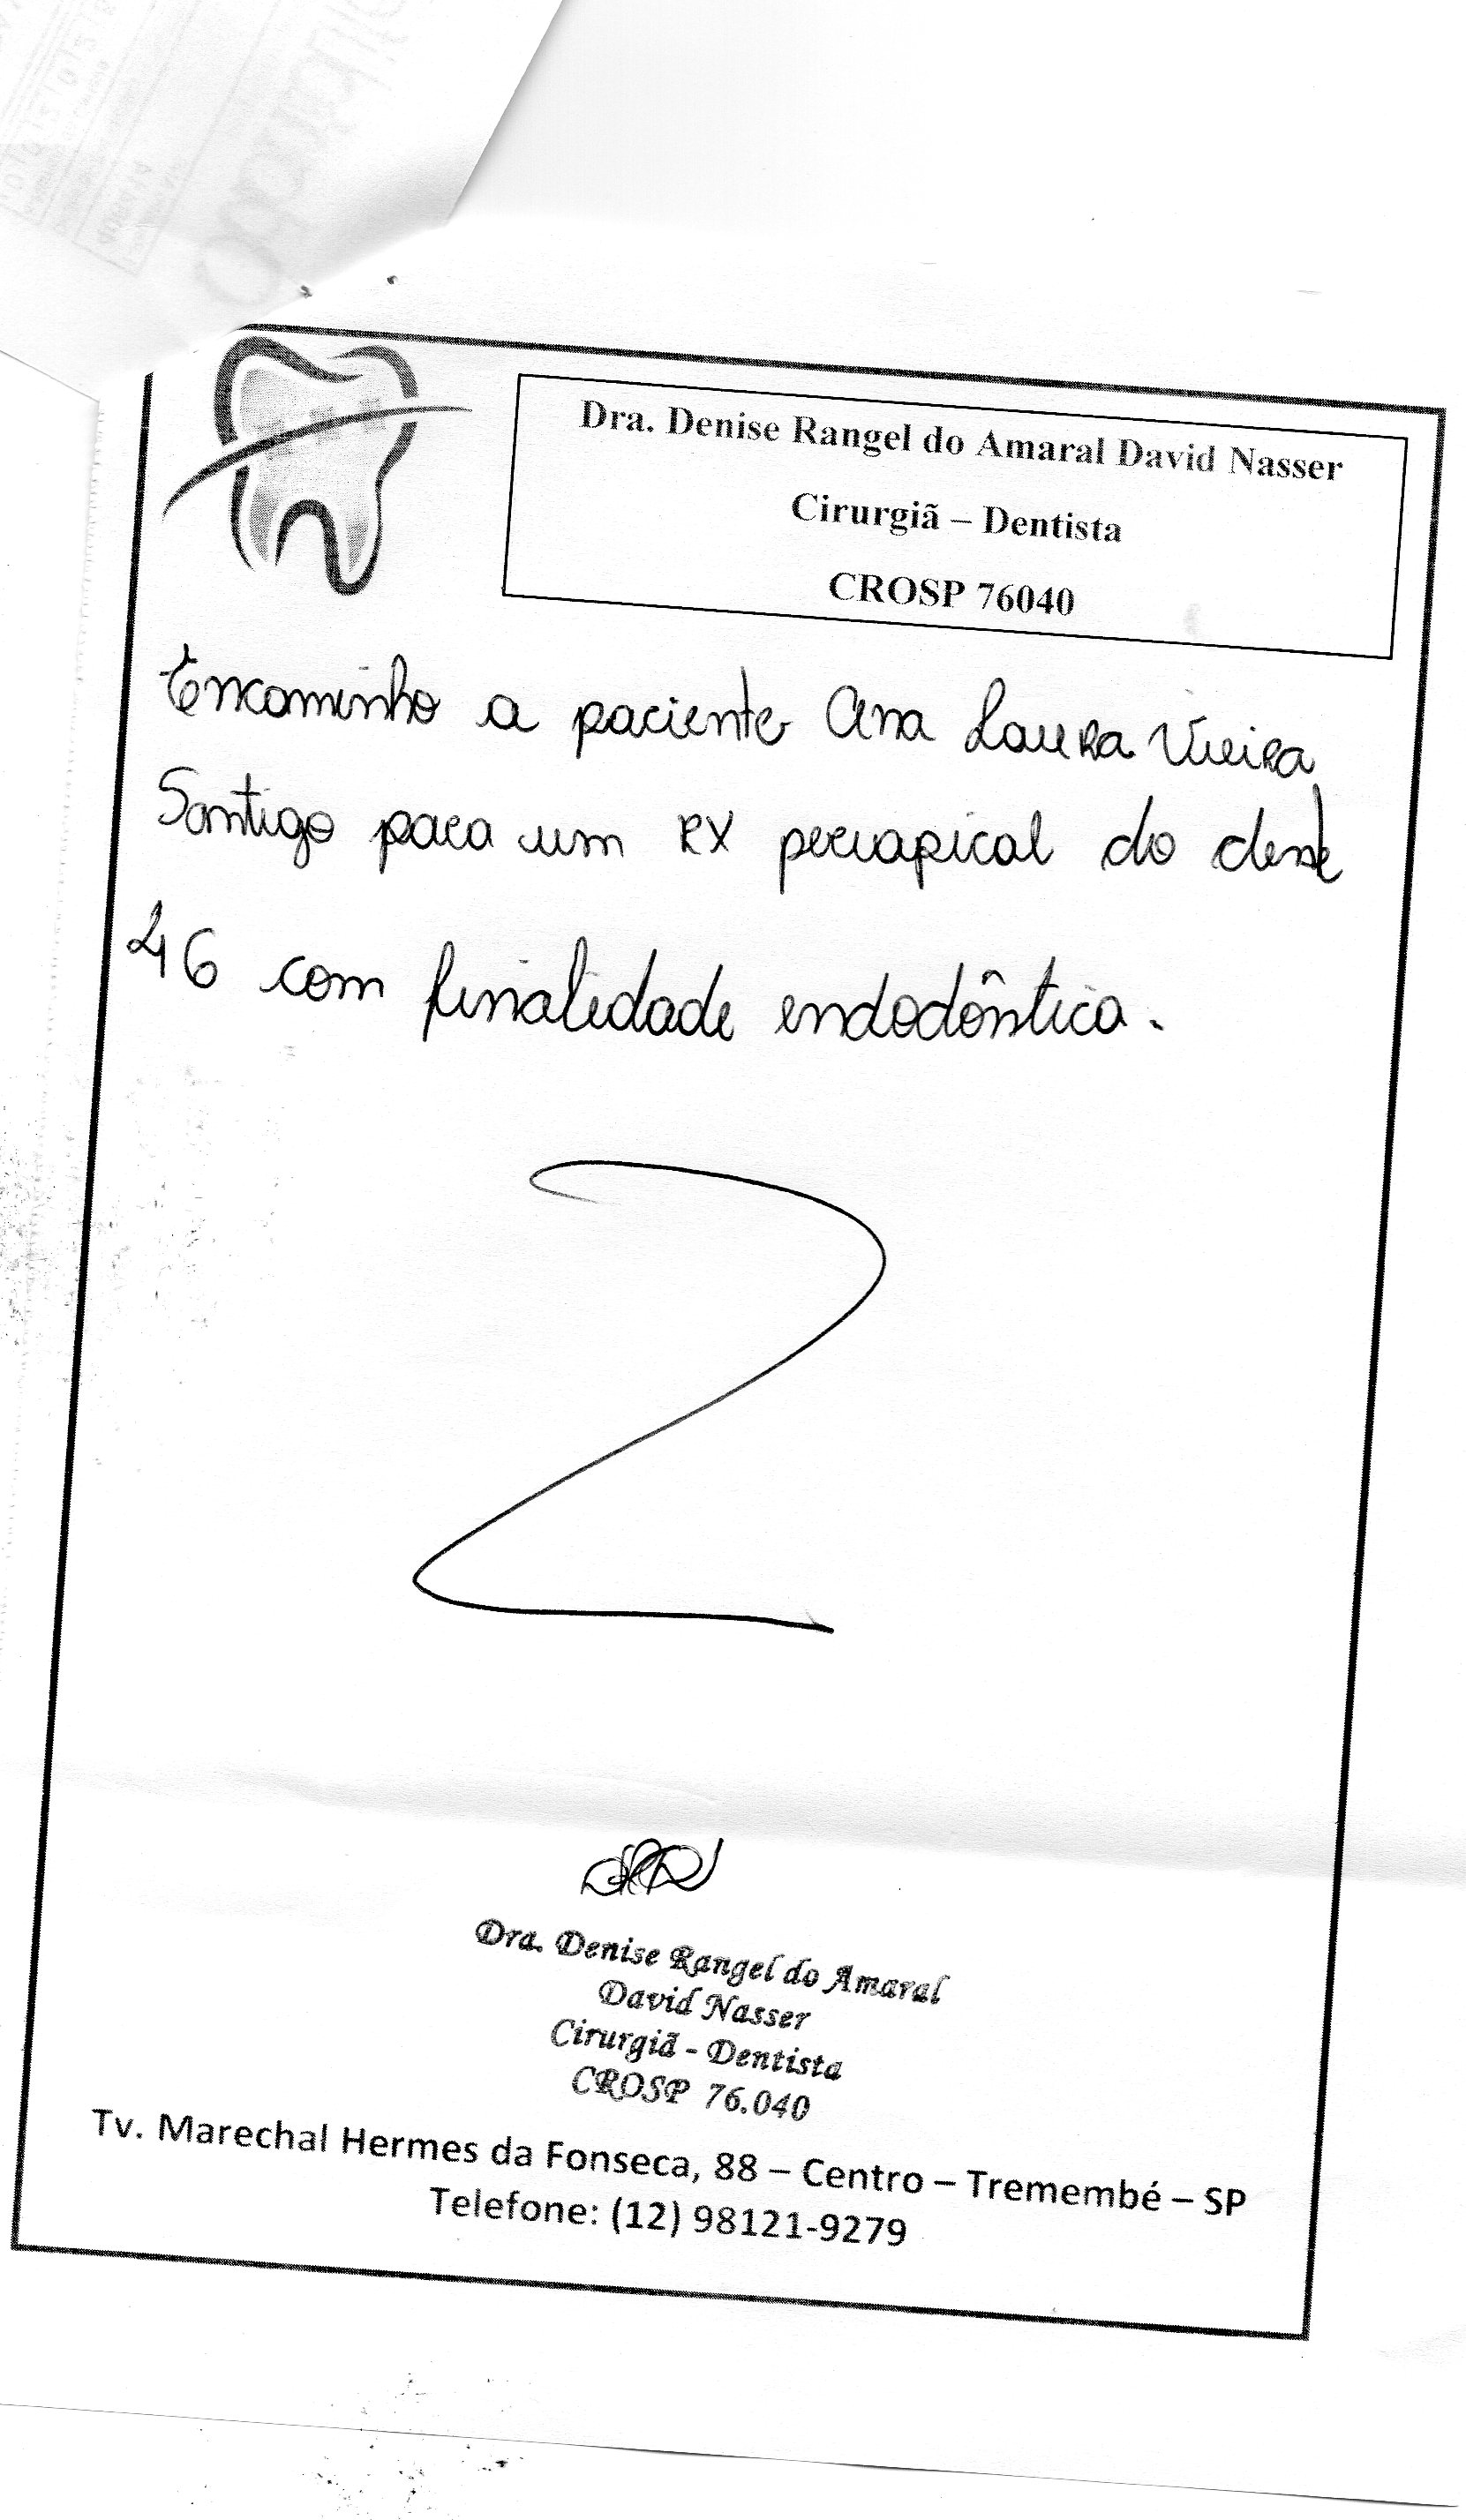 Dra. Denise Rangel do Amaral David Nasser
Cirurgiã – Dentista
CROSP 76040
Encaminho a paciente Ana Laura Vieira
Santigo para um RX periapical do dente
46 com finalidade endodôntica.
Dra. Denise Rangel do Amaral
David Nasser
Cirurgiã - Dentista
CROSP 76.040
Tv. Marechal Hermes da Fonseca, 88 – Centro – Tremembé – SP
Telefone: (12) 98121-9279